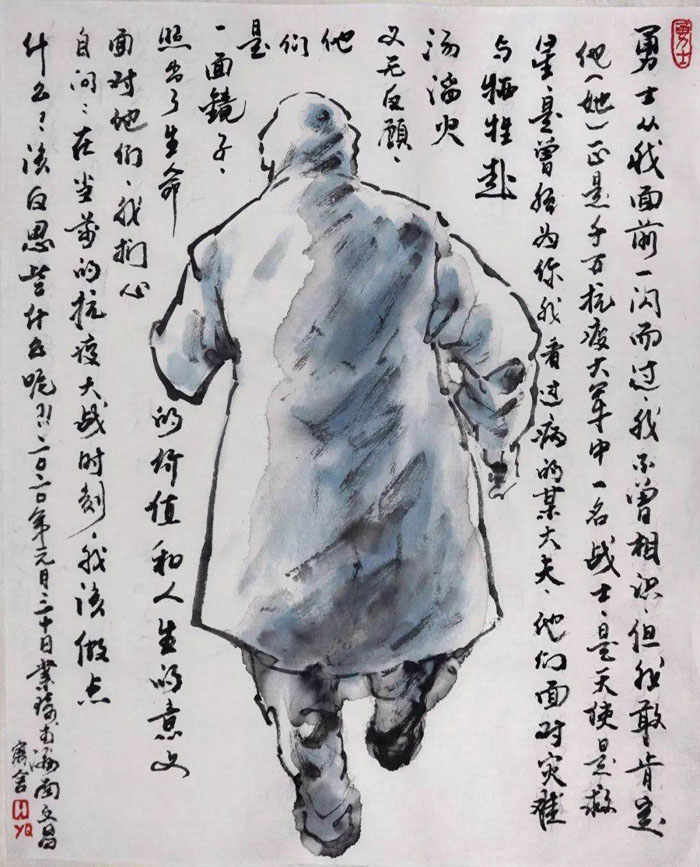 勇士
勇士从我面前一闪而过、我不曾相识、但我敢肯定
他(她)正是千万抗疫大军中一名战士、是天使是救
星、是曾经为你我看过病的某大夫、他们面对灾难
与牺牲赴
汤火
义无反顾、
他们是
一面镜子、
照出了生命的价值和人生的意义
面对他们、我扪心
自问:在当前的抗疫大战时刻、我该做点
什么?该反思些什么呢!!二〇二〇年元月三十日業于海南文昌
寓舍
YQ